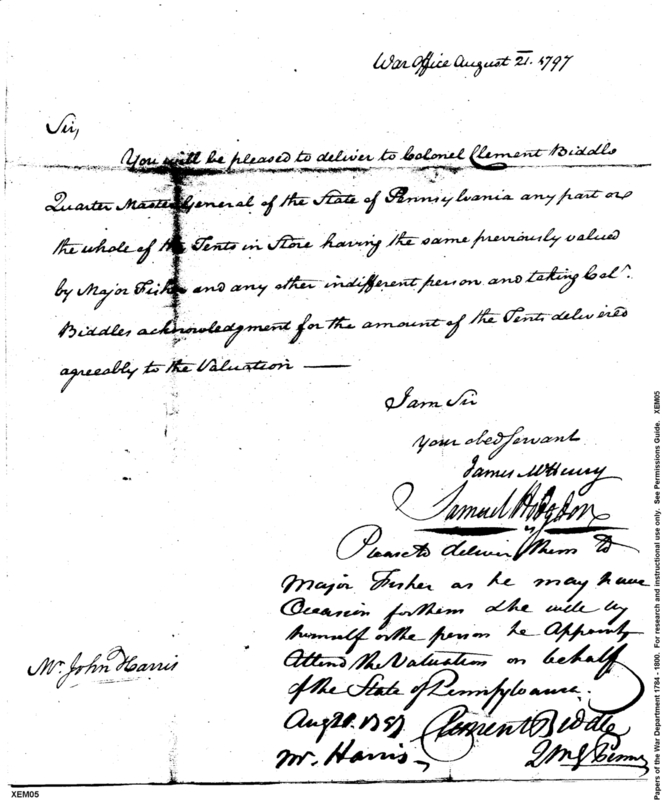 War Office August 21. 1797
Sir,
You will be pleased to deliver to Colonel Clement Biddle
Quarter Master General of the State of Pennsylvania any part or
the whole of the Tents in Store having the same previously valued
by Major Fisher and any other indifferent person and taking Colo.
Biddles acknowledgment for the amount of the Tents delivered
agreeably to the Valuation —
I am Sir
your obed servant
James McHenry
Samuel Hodgdon
Please to deliver them to
Major Fisher as he may have
Occasion for them & he will by
himself or the person he Appoints
Attend the Valuation on behalf
of the State of Pennsylvania.
Aug 21. 1797 Clement Biddle
Mr. Harris QMG Penns
Mr. John Harris
XEM05
Papers of the War Department 1784 - 1800. For research and instructional use only. See Permissions Guide. XEM05